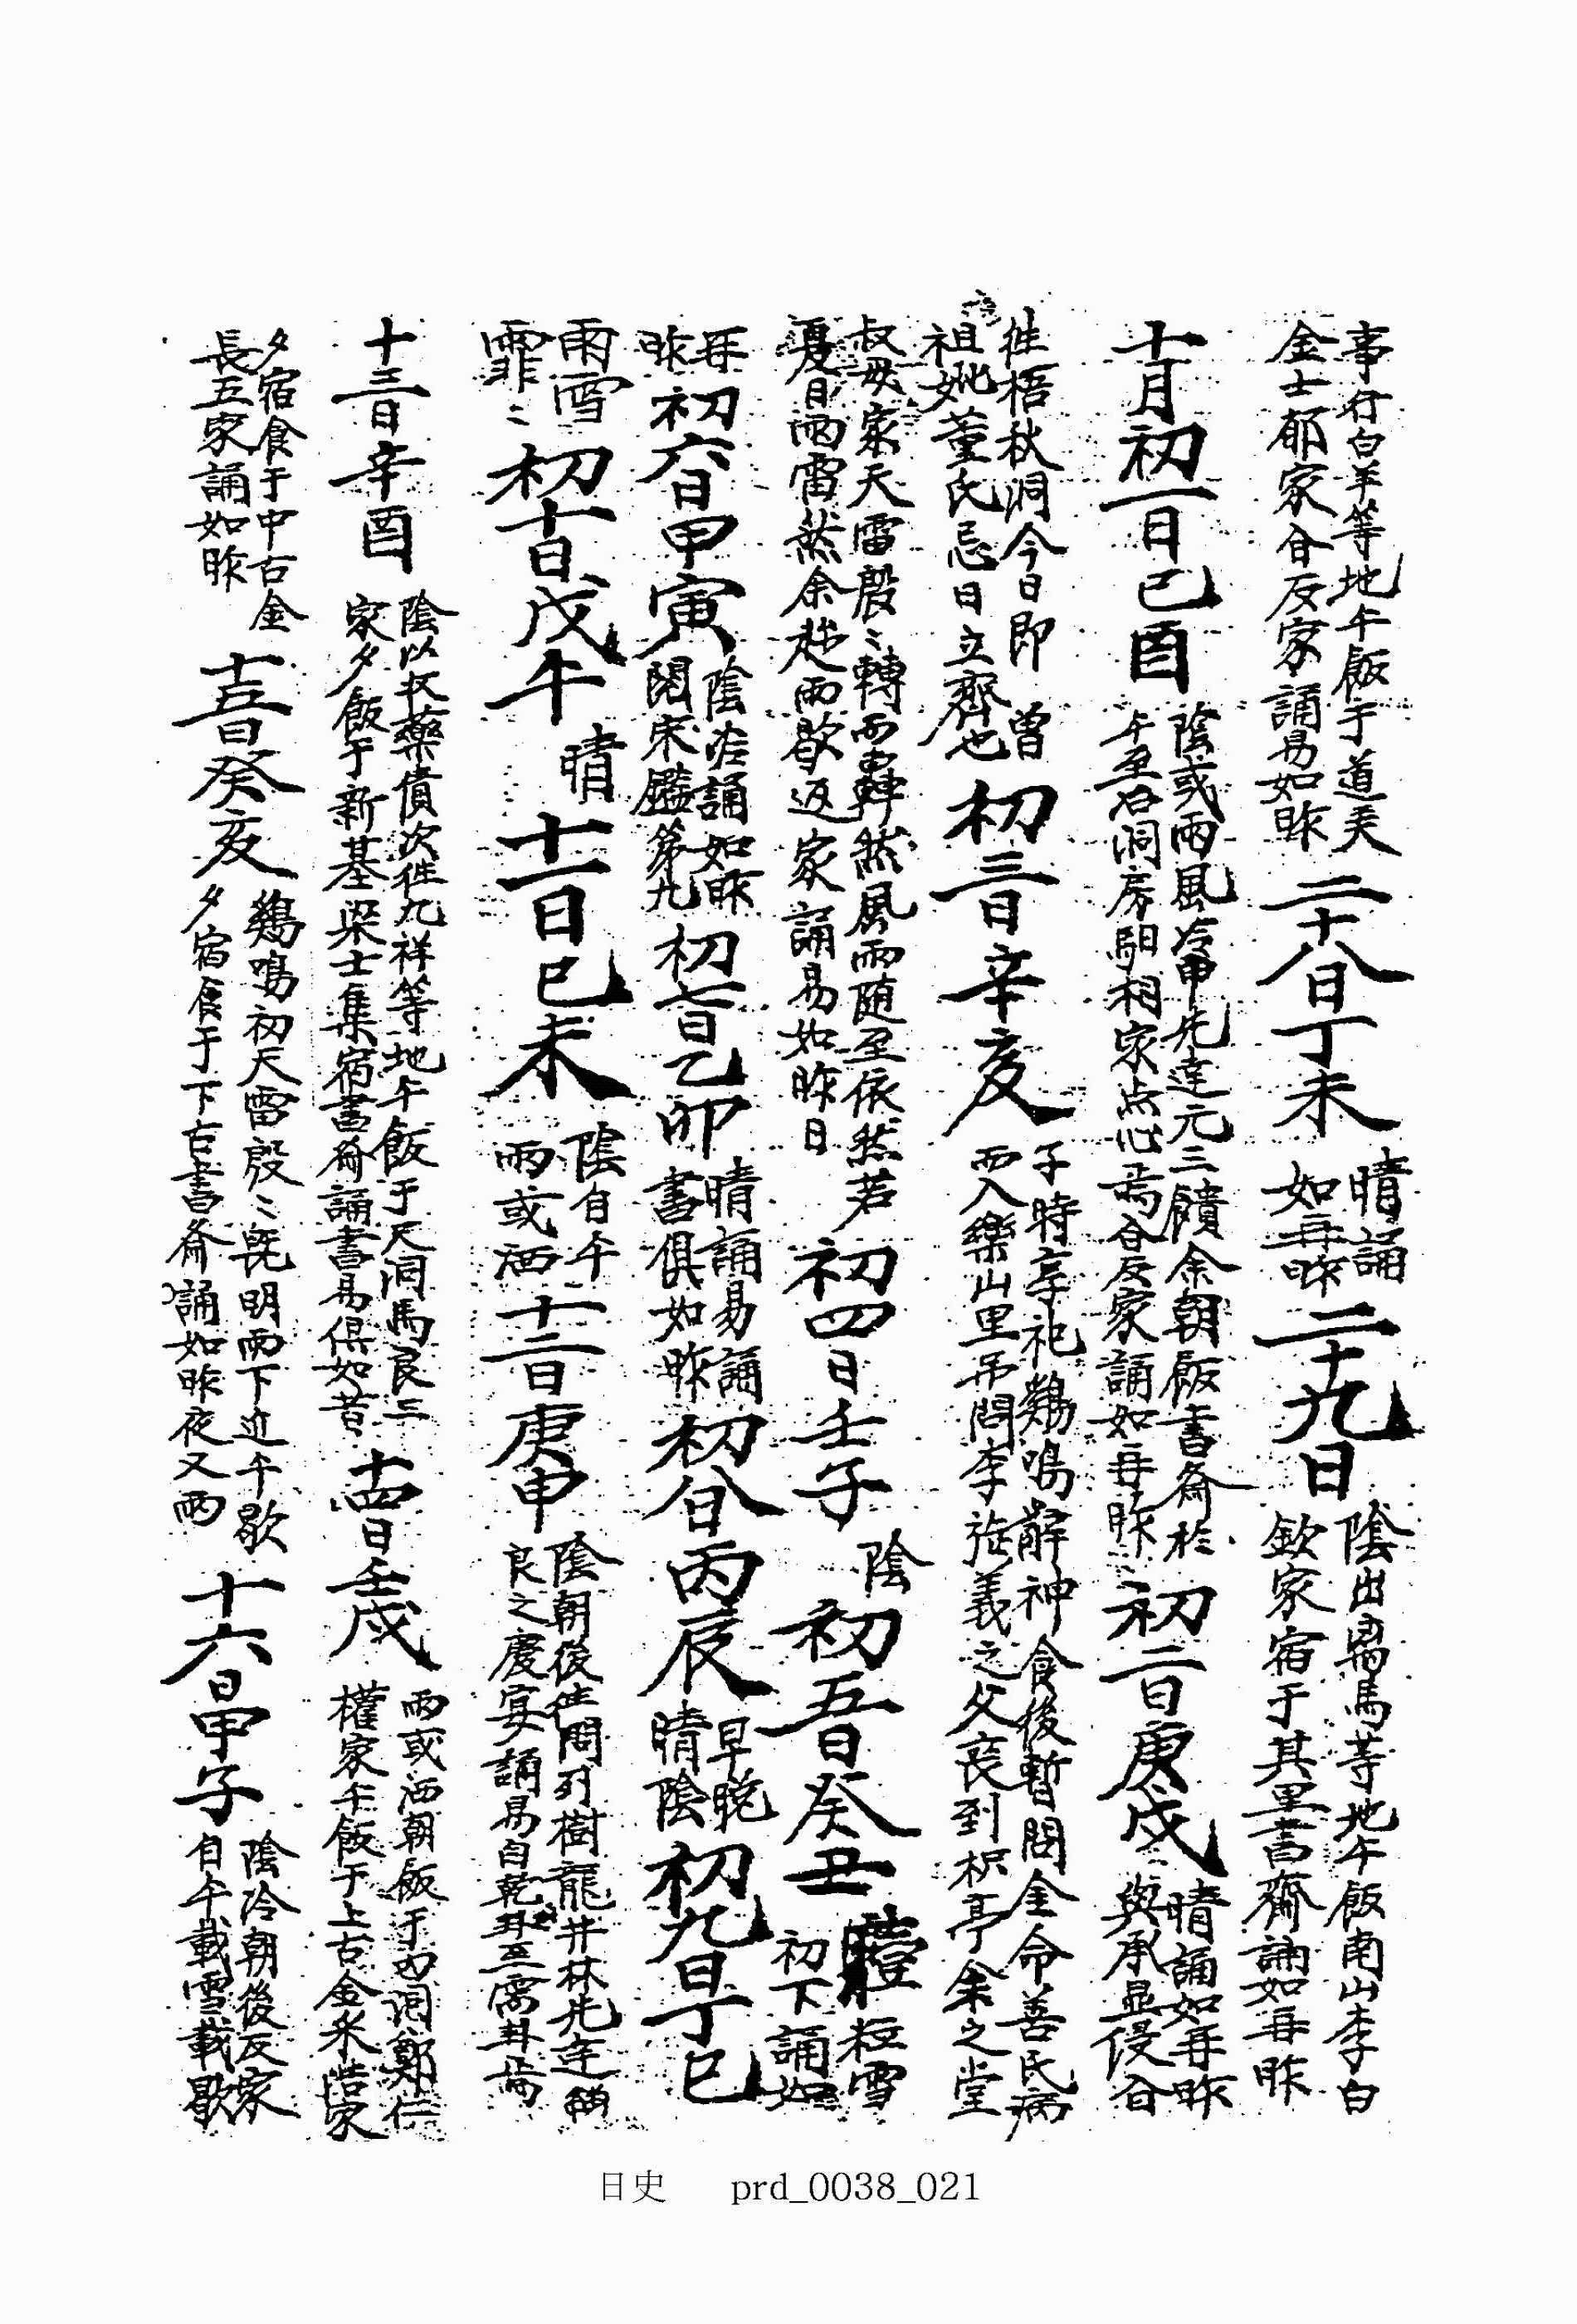 事行白羊等地午飯于道美
金士郁家合反家誦易如昨 二十八日丁未 晴誦
如再昨 二十九日 陰出禹馬等地午飯南山李白
欽家宿于其里書齋誦如再昨
十月初一日己酉 陰或雨風冷甲先達元三饋余朝飯書齋於
午至召洞房駬相家点心焉合反家誦如再昨 初二日庚戌 晴誦如再昨
與承显侵合
徃梧秋洞今日即 曾
祖妣董氏忌日立齋也 初三日辛亥 子時享祀鷄鳴辭神食後暫問金命善氏病
而入樂山里吊問李 義之父喪到枳亭余之堂
叔母家天雷殷〻轉而轟然風雨随至依然若
夏日雨雷然余趁雨歇返家誦易如昨日 初四日壬子 陰 初五日癸丑 粒雪
初下誦如
再
昨 初六日甲寅 陰 誦如昨
閱宋鑑第九 初七日乙卯 晴誦易誦
書俱如昨 初八日丙辰 早晩
晴陰 初九日丁巳
雨雪
霏〻 初十日戊午 晴 十一日己未 陰自午
雨或洒 十二日庚申 陰朝後徃問列樹龍井林先達
良之慶宴誦易自乾卦至需卦焉
十三日辛酉 陰以收藥債次徃九祥等地午飯于尺洞馬良三
家夕飯于新基梁士集宿書齋誦書易俱如昔 十四日壬戌 雨或洒朝飯于 洞鄭仁
權家午飯于上古金 浩家
夕宿食于中古金
長五家誦如昨 十五日癸亥 鷄鳴初天雷殷〻既明雨下近午歇
夕宿食于下古書齋誦如昨夜又雨 十六日甲子 陰冷朝後反家
自午載雪載歇
日史 prd_0038_021